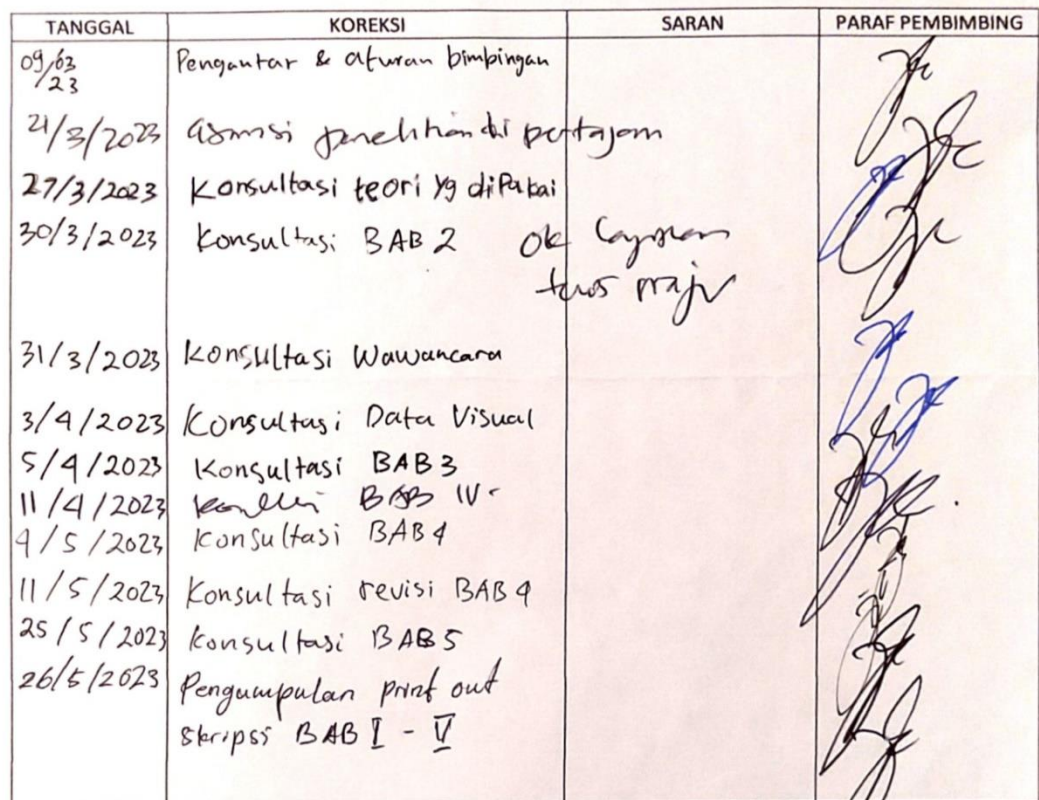 TANGGAL KOREKSI SARAN PARAF PEMBIMBING
09/03/23 Pengantar & aturan bimbingan
21/3/2023 asumsi penelitian di pertajam
27/3/2023 Konsultasi teori yg dipakai
30/3/2023 Konsultasi BAB 2 ok
terus
31/3/2023 Konsultasi Wawancara
3/4/2023 Konsultasi Data Visual
5/4/2023 Konsultasi BAB 3
11/4/2023 BAB IV
4/5/2023 Konsultasi BAB 4
11/5/2023 Konsultasi revisi BAB 4
25/5/2023 Konsultasi BAB 5
26/5/2023 Pengumpulan print out
skripsi BAB I - V